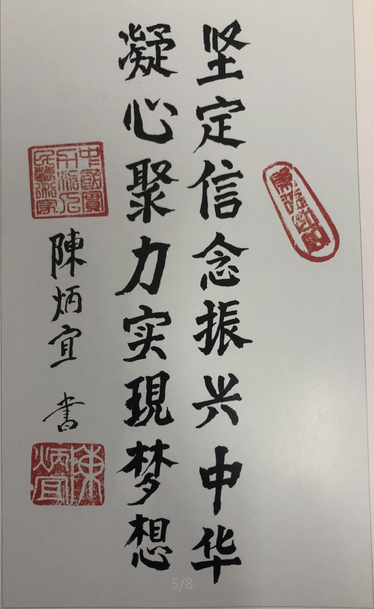 坚定信念振兴中华
凝心聚力实現梦想
陳炳宜 书
陳炳宜
5/8